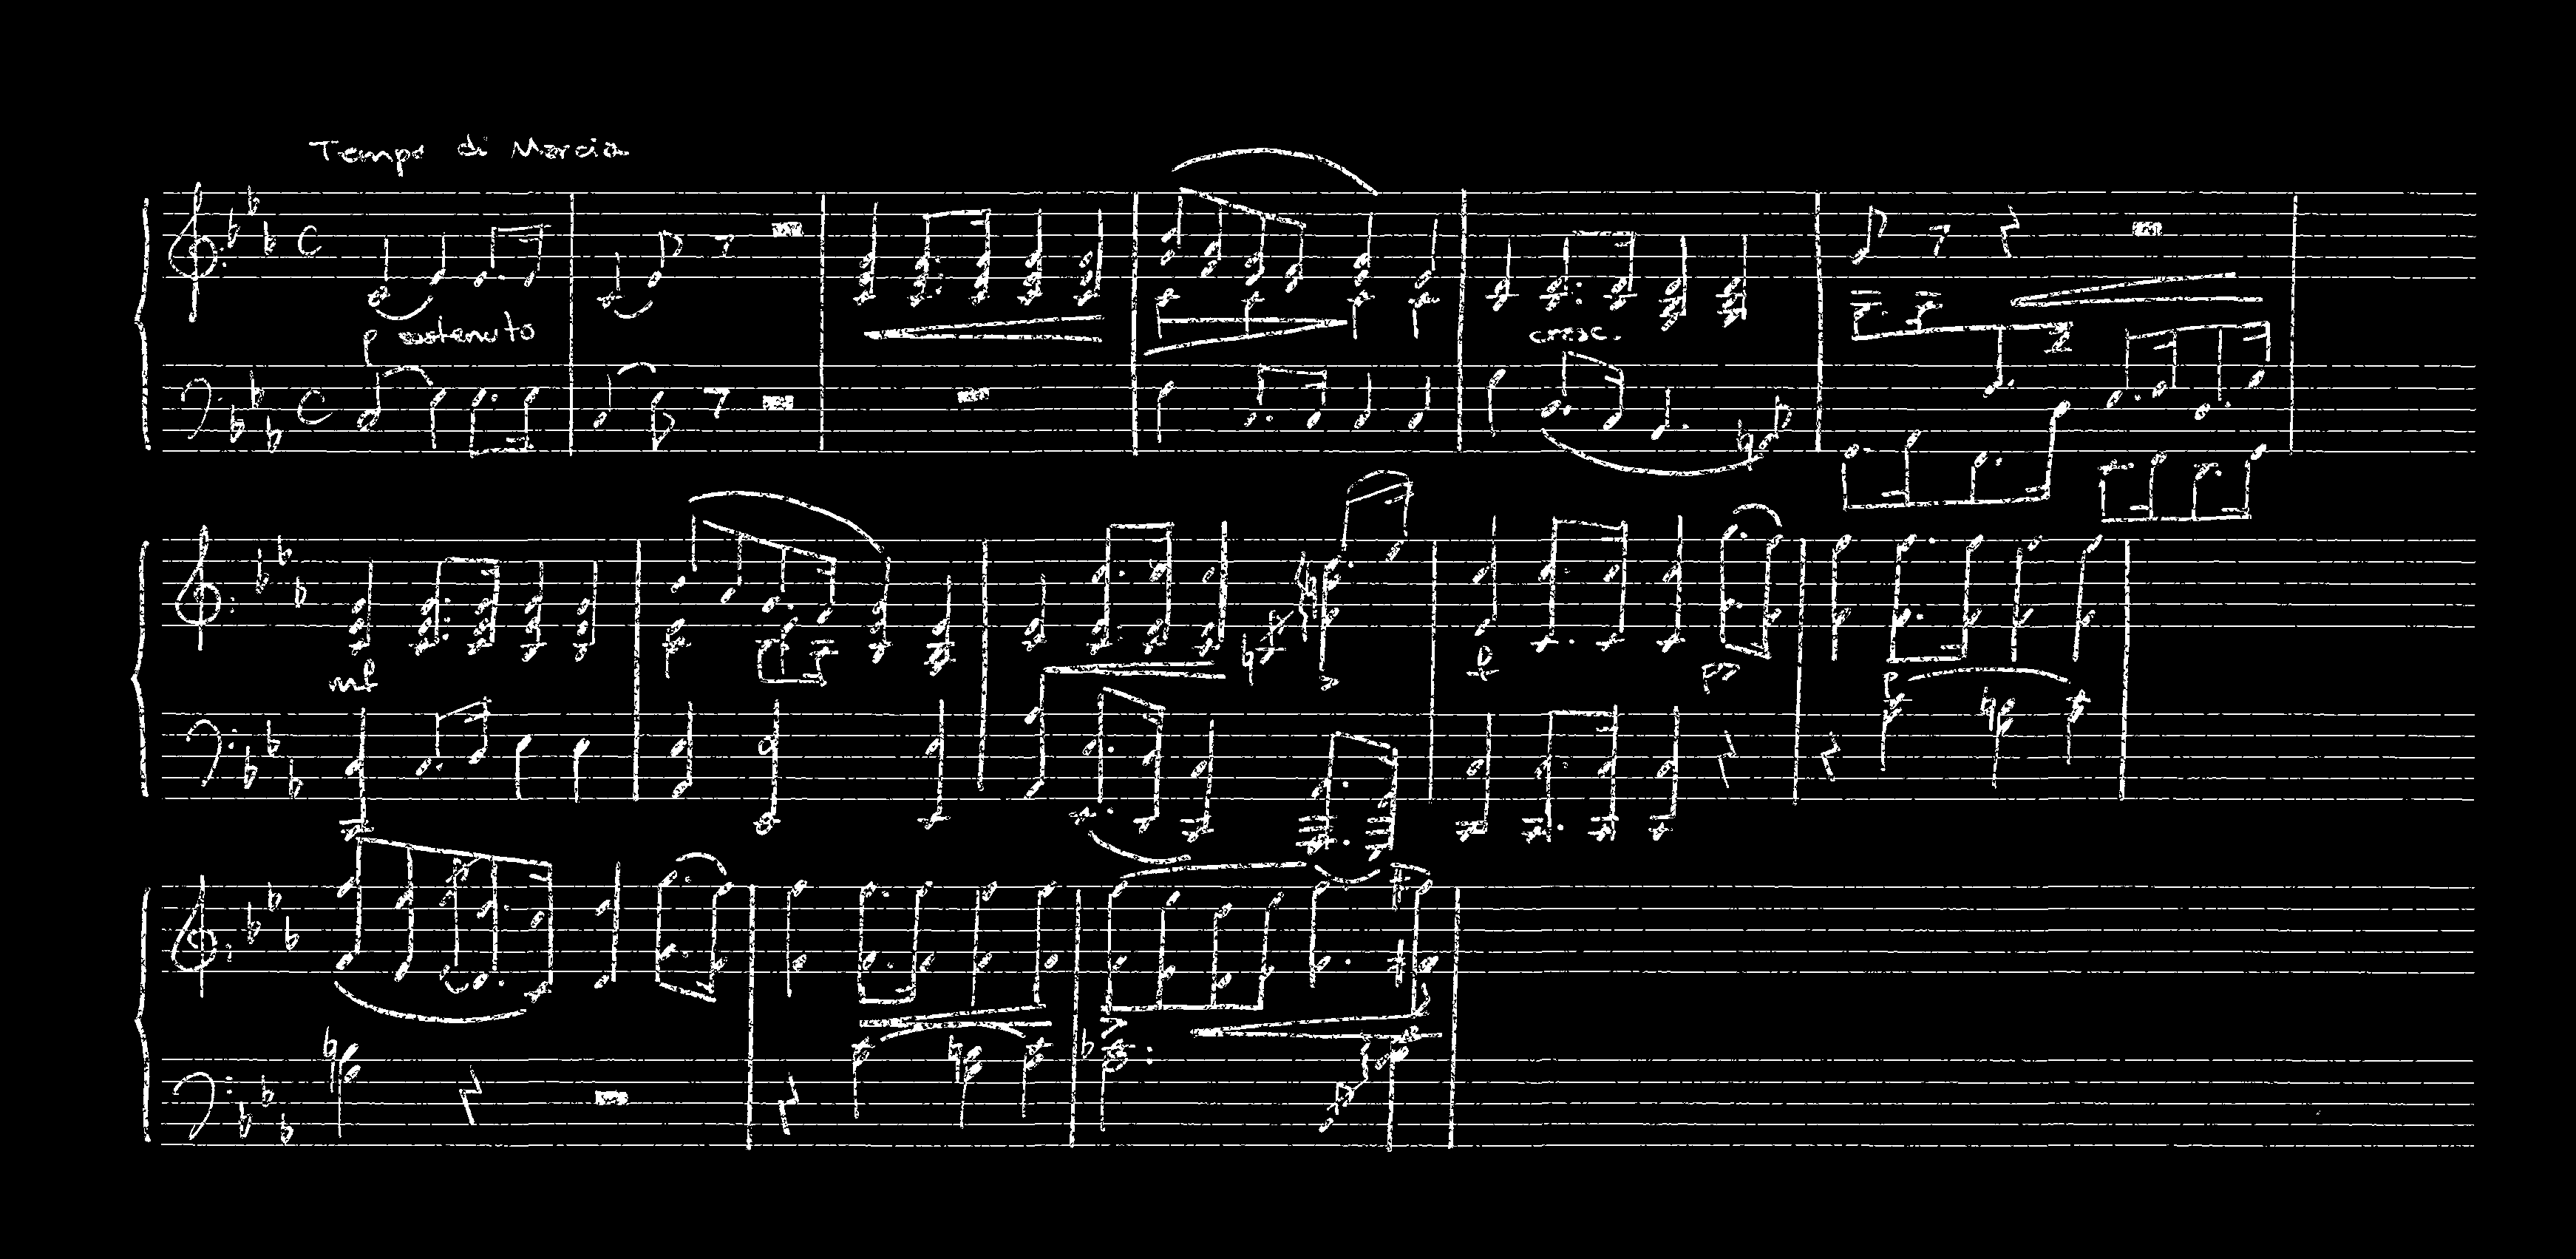 Tempo di Marcia
p sostenuto
cresc.
mf
f
pp
p